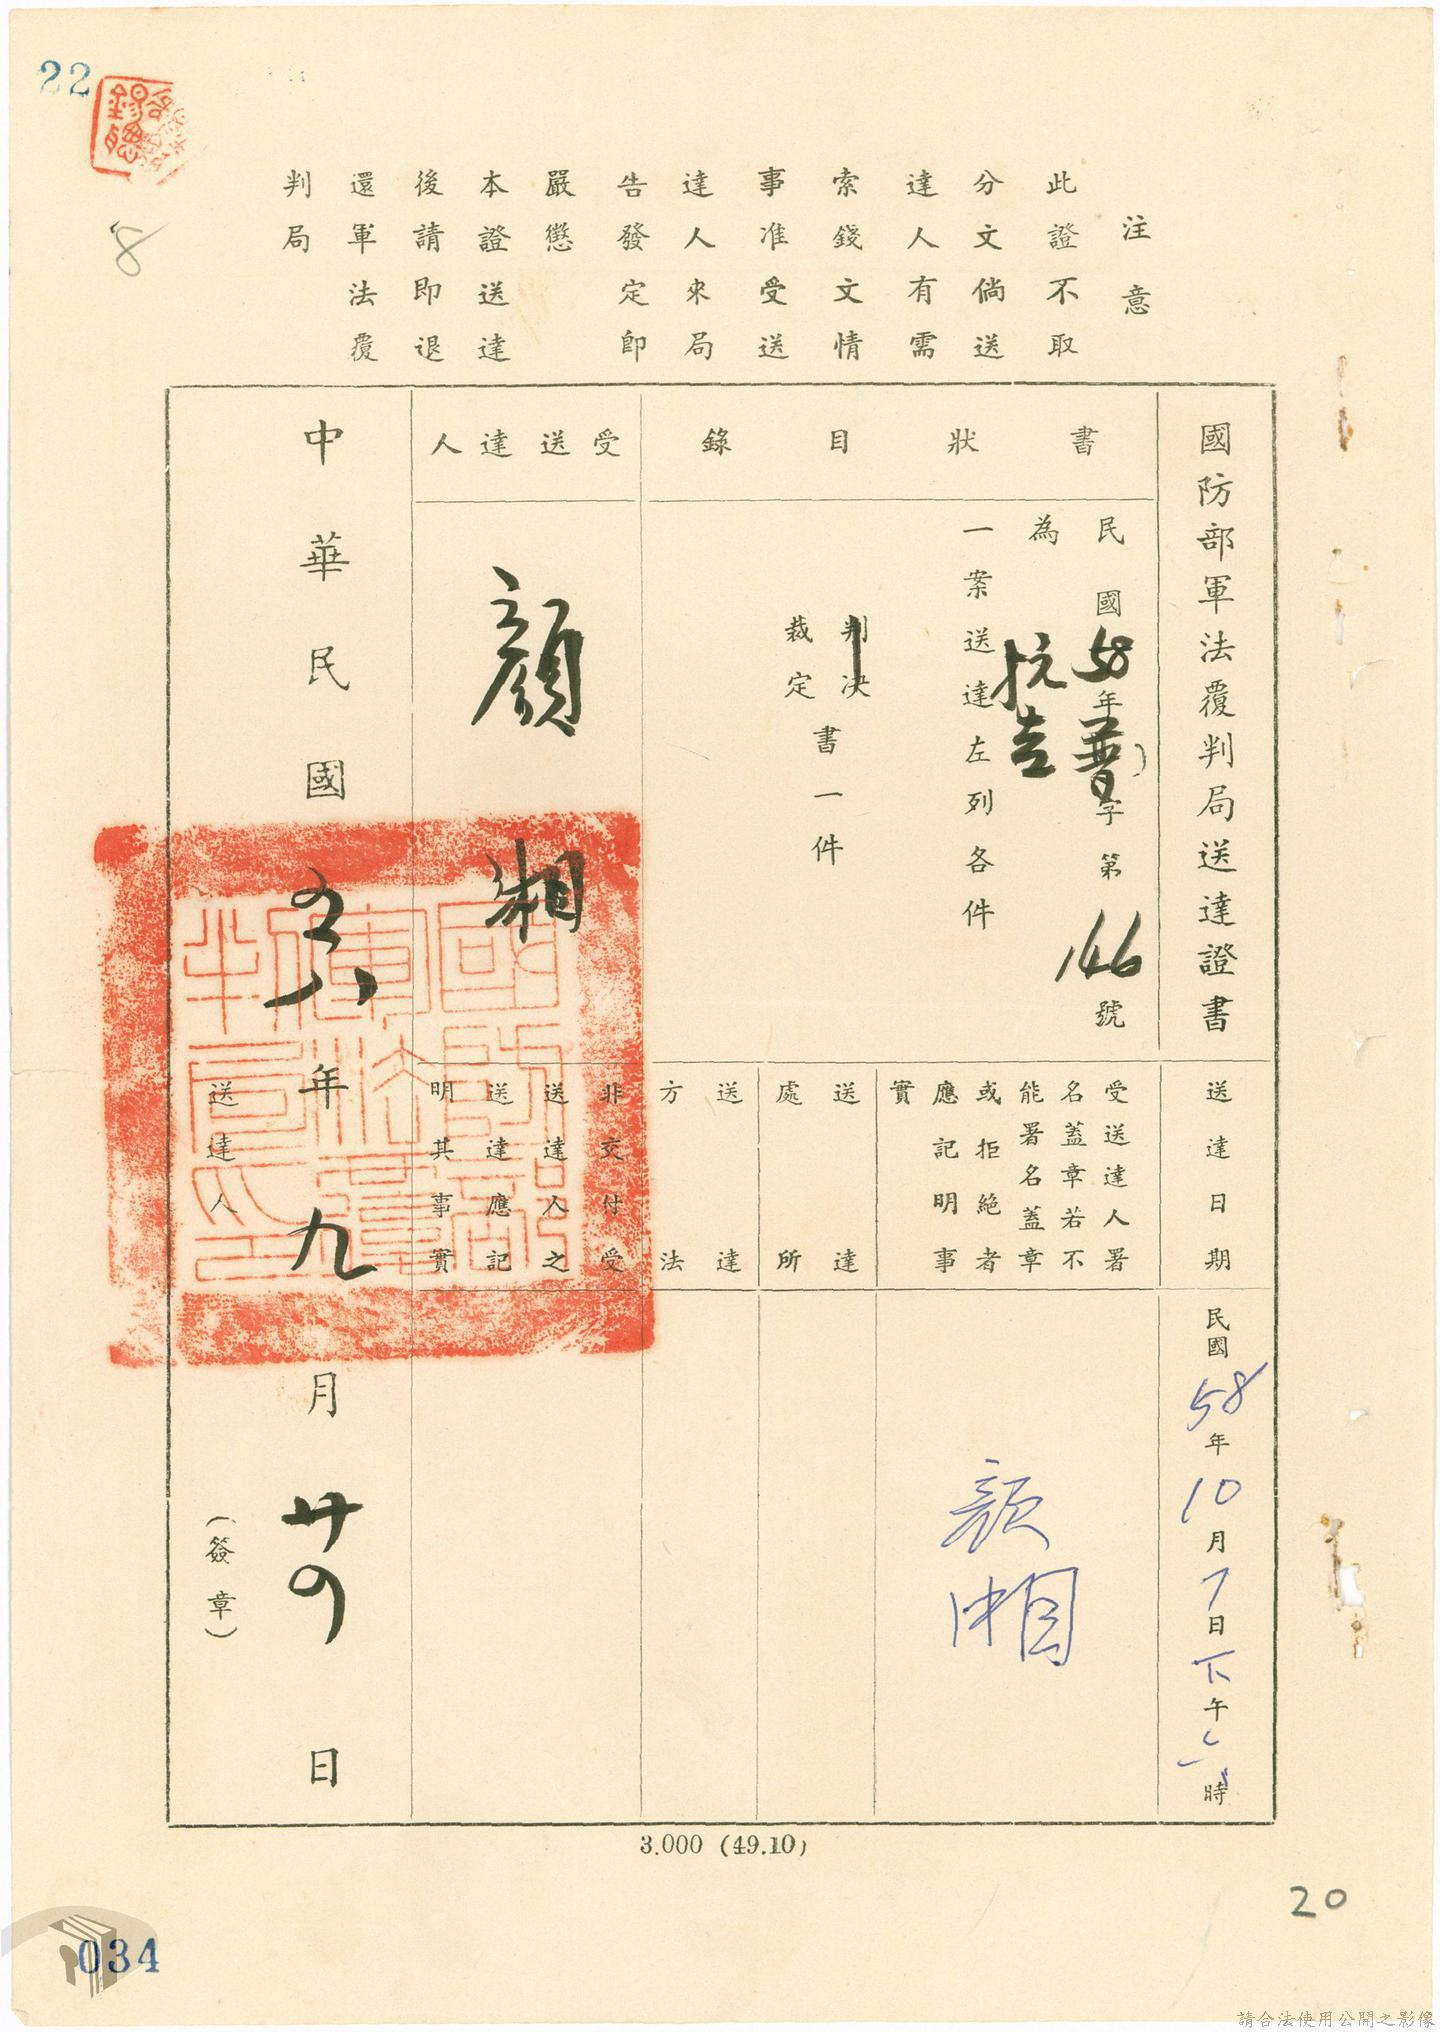 22
8
注意
此證不取
分文倘送
達人有需
索錢文情
事准受送
達人來局
告發定即
嚴懲
本證送達
後請即退
還軍法覆
判局
國防部軍法覆判局送達證書
書狀目錄
民國58年普字第146號
為抗告
一案送達左列各件
判決
裁定
書一件
受送達人
顏湘
送達日期
民國58年10月7日下午 時
受送達人署
名蓋章若不
能署名蓋章
或拒絕者
應記明事
實
顏湘
送達
處所
送達
方法
非交付受
送達人之
送達應記
明其事實
中華民國五八年九月廿四日
送達人
(簽章)
國防部軍法覆判局印
3.000 (49.10)
20
034
請合法使用公開之影像